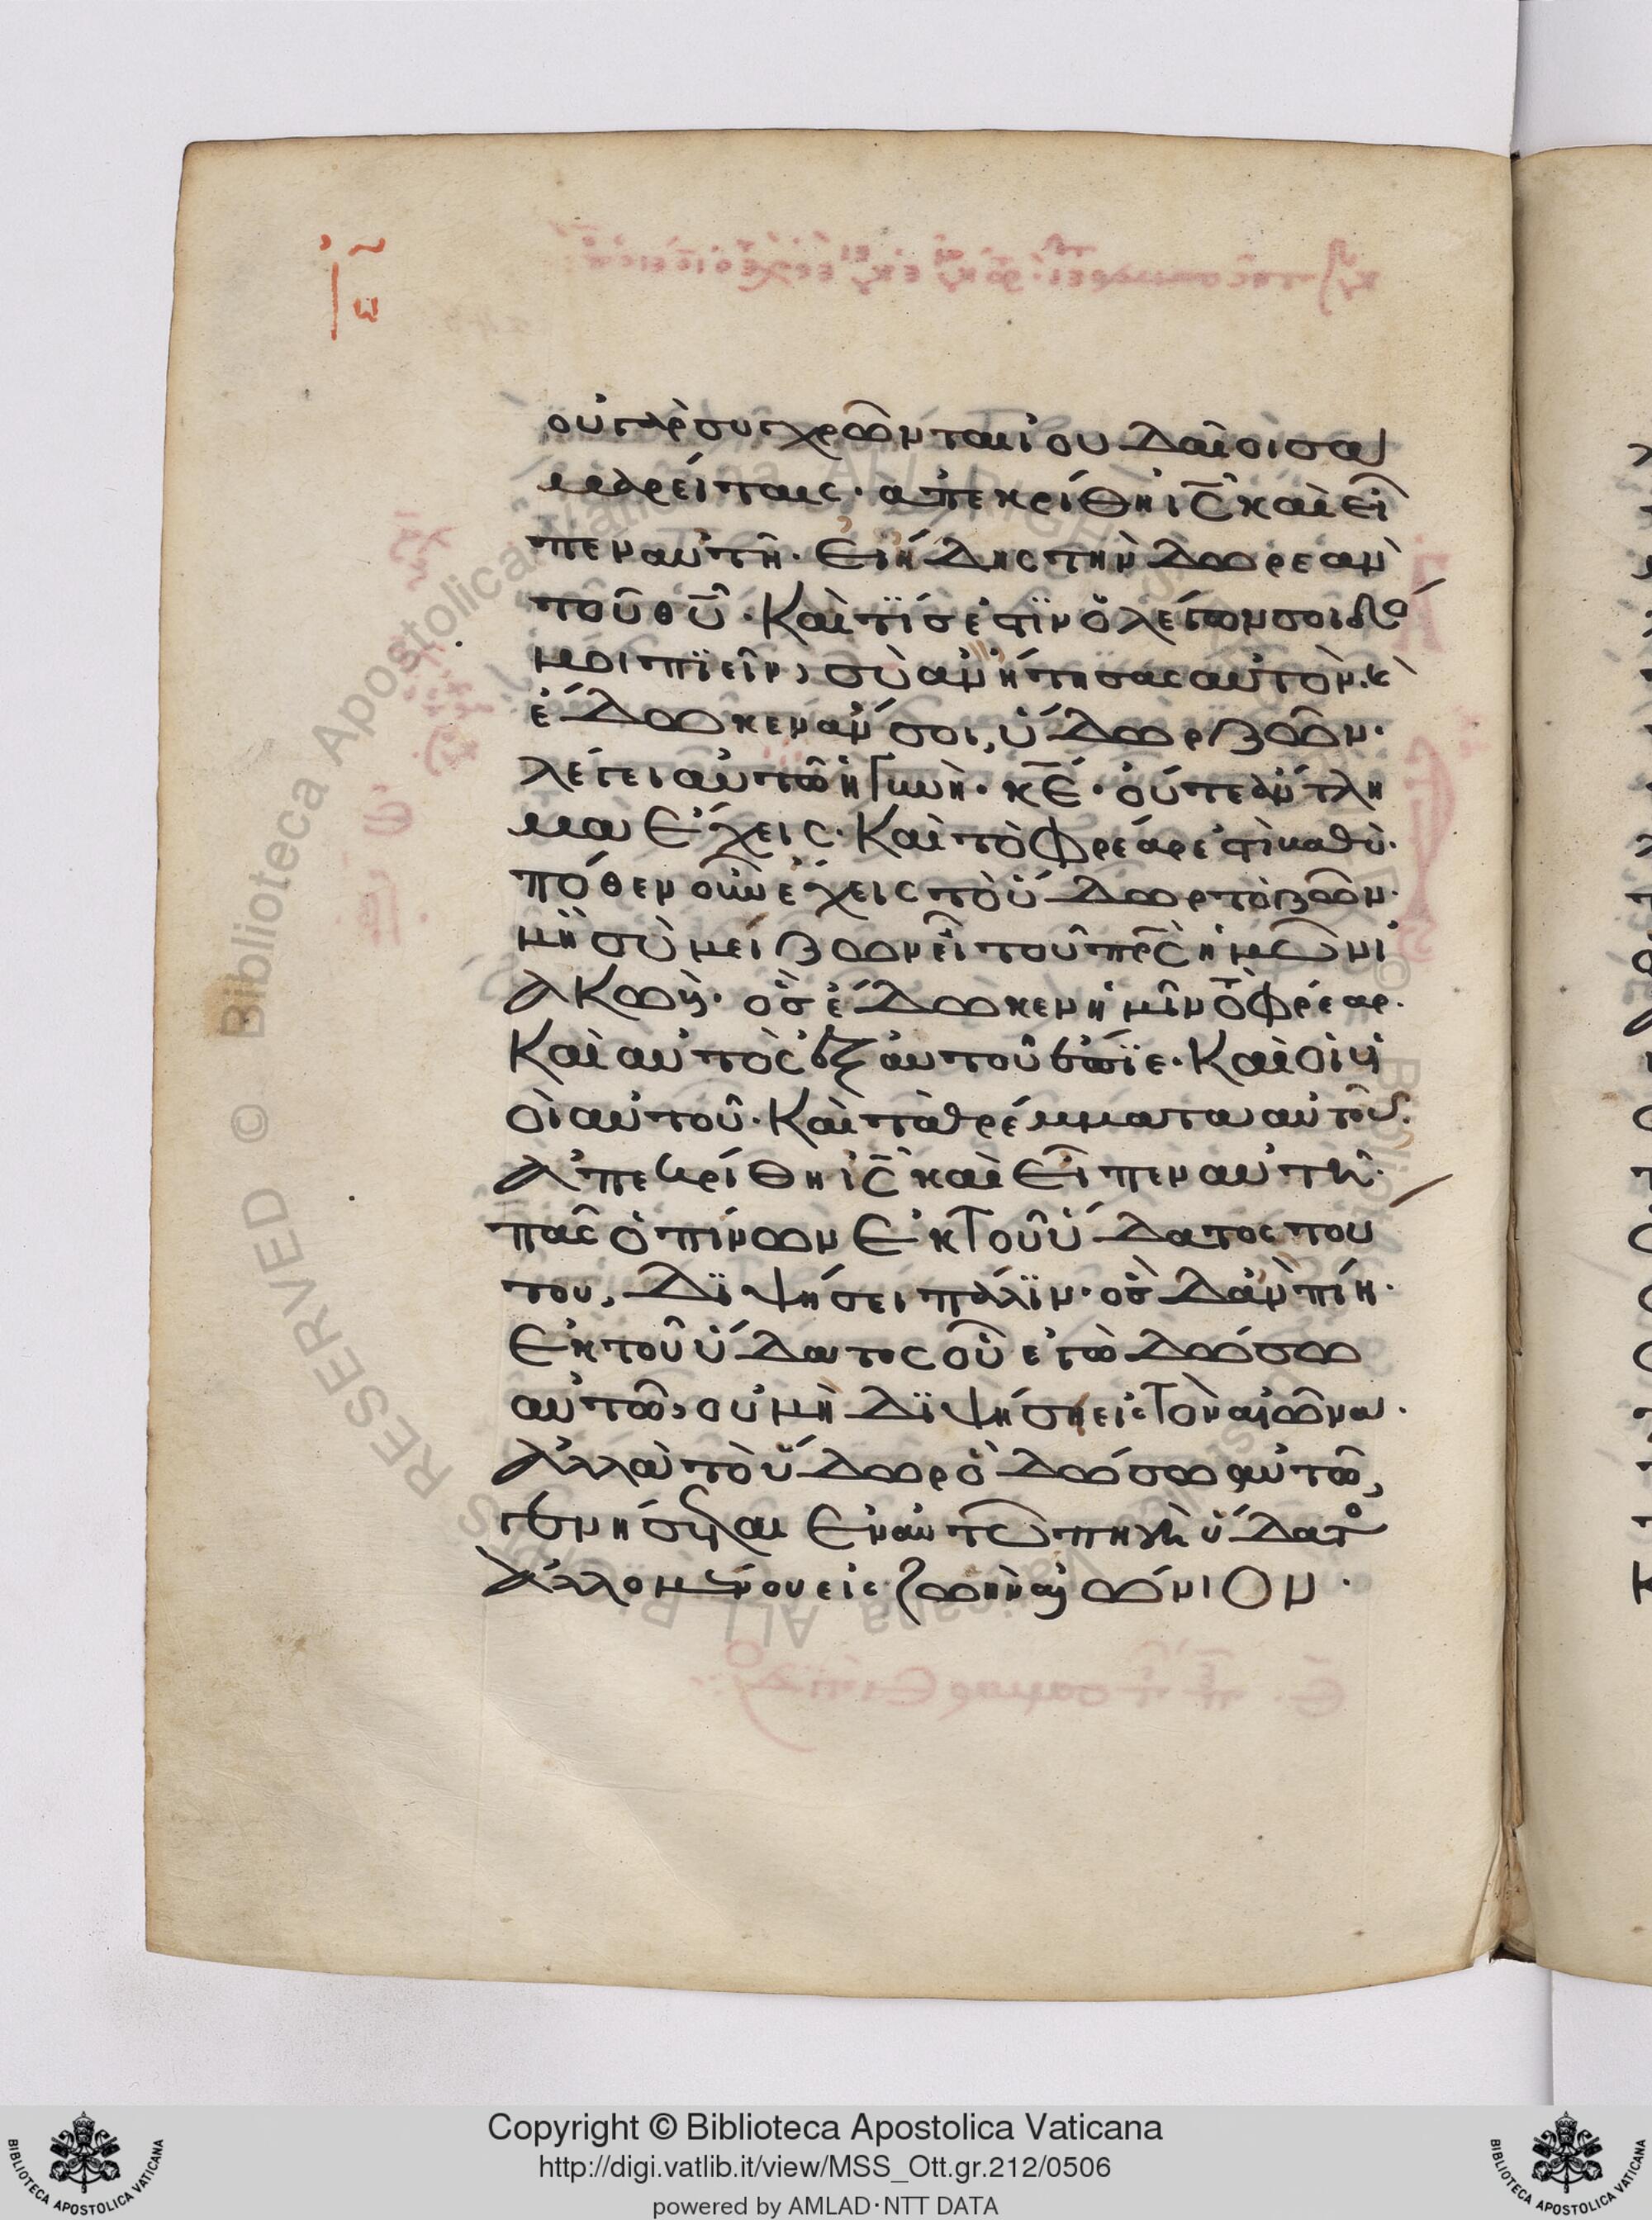 οὐ γὰρ συγχρῶνται ἰουδαῖοι σα
μαρείταις· ἀπεκρίθη ἰ̅ς̅ καὶ εἶ
πεν αὐτῇ· εἰ ἤδης τὴν δωρεὰν
τοῦ θ̅υ̅· καὶ τίς ἐστιν ὁ λέγων σοι δό
μοι πϊεῖν, σὺ ἂν ᾔτησας αὐτὸν· κ(αὶ)
ἔδωκεν ἄν σοι, ὕδωρ ζῶν·
λέγει αὐτῷ ἡ γυνή· κ̅ε̅· οὔτε ἄντλη
μα ἔχεις· καὶ τὸ φρέαρ ἐστὶ βαθύ·
πόθεν οὖν ἔχεις τὸ ὕδωρ τὸ ζῶν·
μὴ σὺ μείζων εἶ τοῦ π̅ρ̅ς̅ ἡμῶν ἰ
ακώβ· ὃς ἔδωκεν ἡμῖν τὸ φρέαρ·
καὶ αὐτὸς ἐξ αὐτοῦ ἔπϊε· καὶ οἱ υἱ
οὶ αὐτοῦ· καὶ τὰ θρέμματα αὐτοῦ·
ἀπεκρίθη ἰ̅ς̅ καὶ εἶπεν αὐτῇ·
πᾶς ὁ πίνων ἐκ τοῦ ὕδατος του
του, δϊψήσει πάλϊν· ὃς δ' ἂν πίη·
ἐκ τοῦ ὕδατος οὗ ἐγὼ δώσω
αὐτῷ, οὐ μὴ δϊψήσῃ εἰς τὸν αἰῶνα·
ἀλλὰ τὸ ὕδωρ ὃ δώσω αὐτῷ,
γενήσεται ἐν αὐτῷ πηγὴ ὕδατο(ς)
ἁλλομένου εἰς ζωὴν αἰώνιον·
Copyright © Biblioteca Apostolica Vaticana
http://digi.vatlib.it/view/MSS_Ott.gr.212/0506
powered by AMLAD·NTT DATA